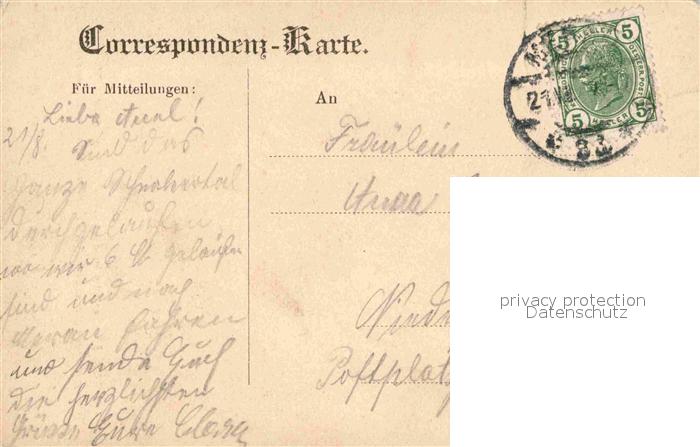 Correspondenz-Karte.
Für Mitteilungen:
An
Liebe
21/8. Sind das
ganze
durchgelaufen
wo wir 6 St gelaufen
sind und nach
Meran fahren
und sende Euch
die herzlichsten
Grüße Eure Clara
Fräulein
Anna
Postplatz
5 5
HELLER
5 5
HELLER
21
privacy protection
Datenschutz